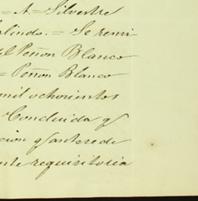 = A. = Silvestre
alindo. = Se remi
el Peñon Blanco
= Peñon Blanco
mil ochocientos
Concluida q
cion q antecede
nte requisitoria